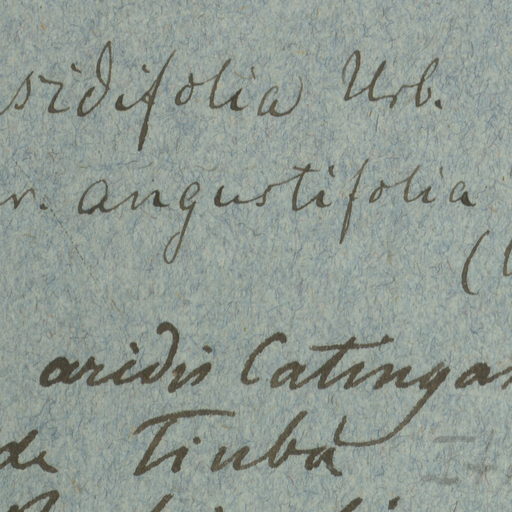 sidifolia Urb.
r. angustifolia
(
aridis Catingas
de Tiuba